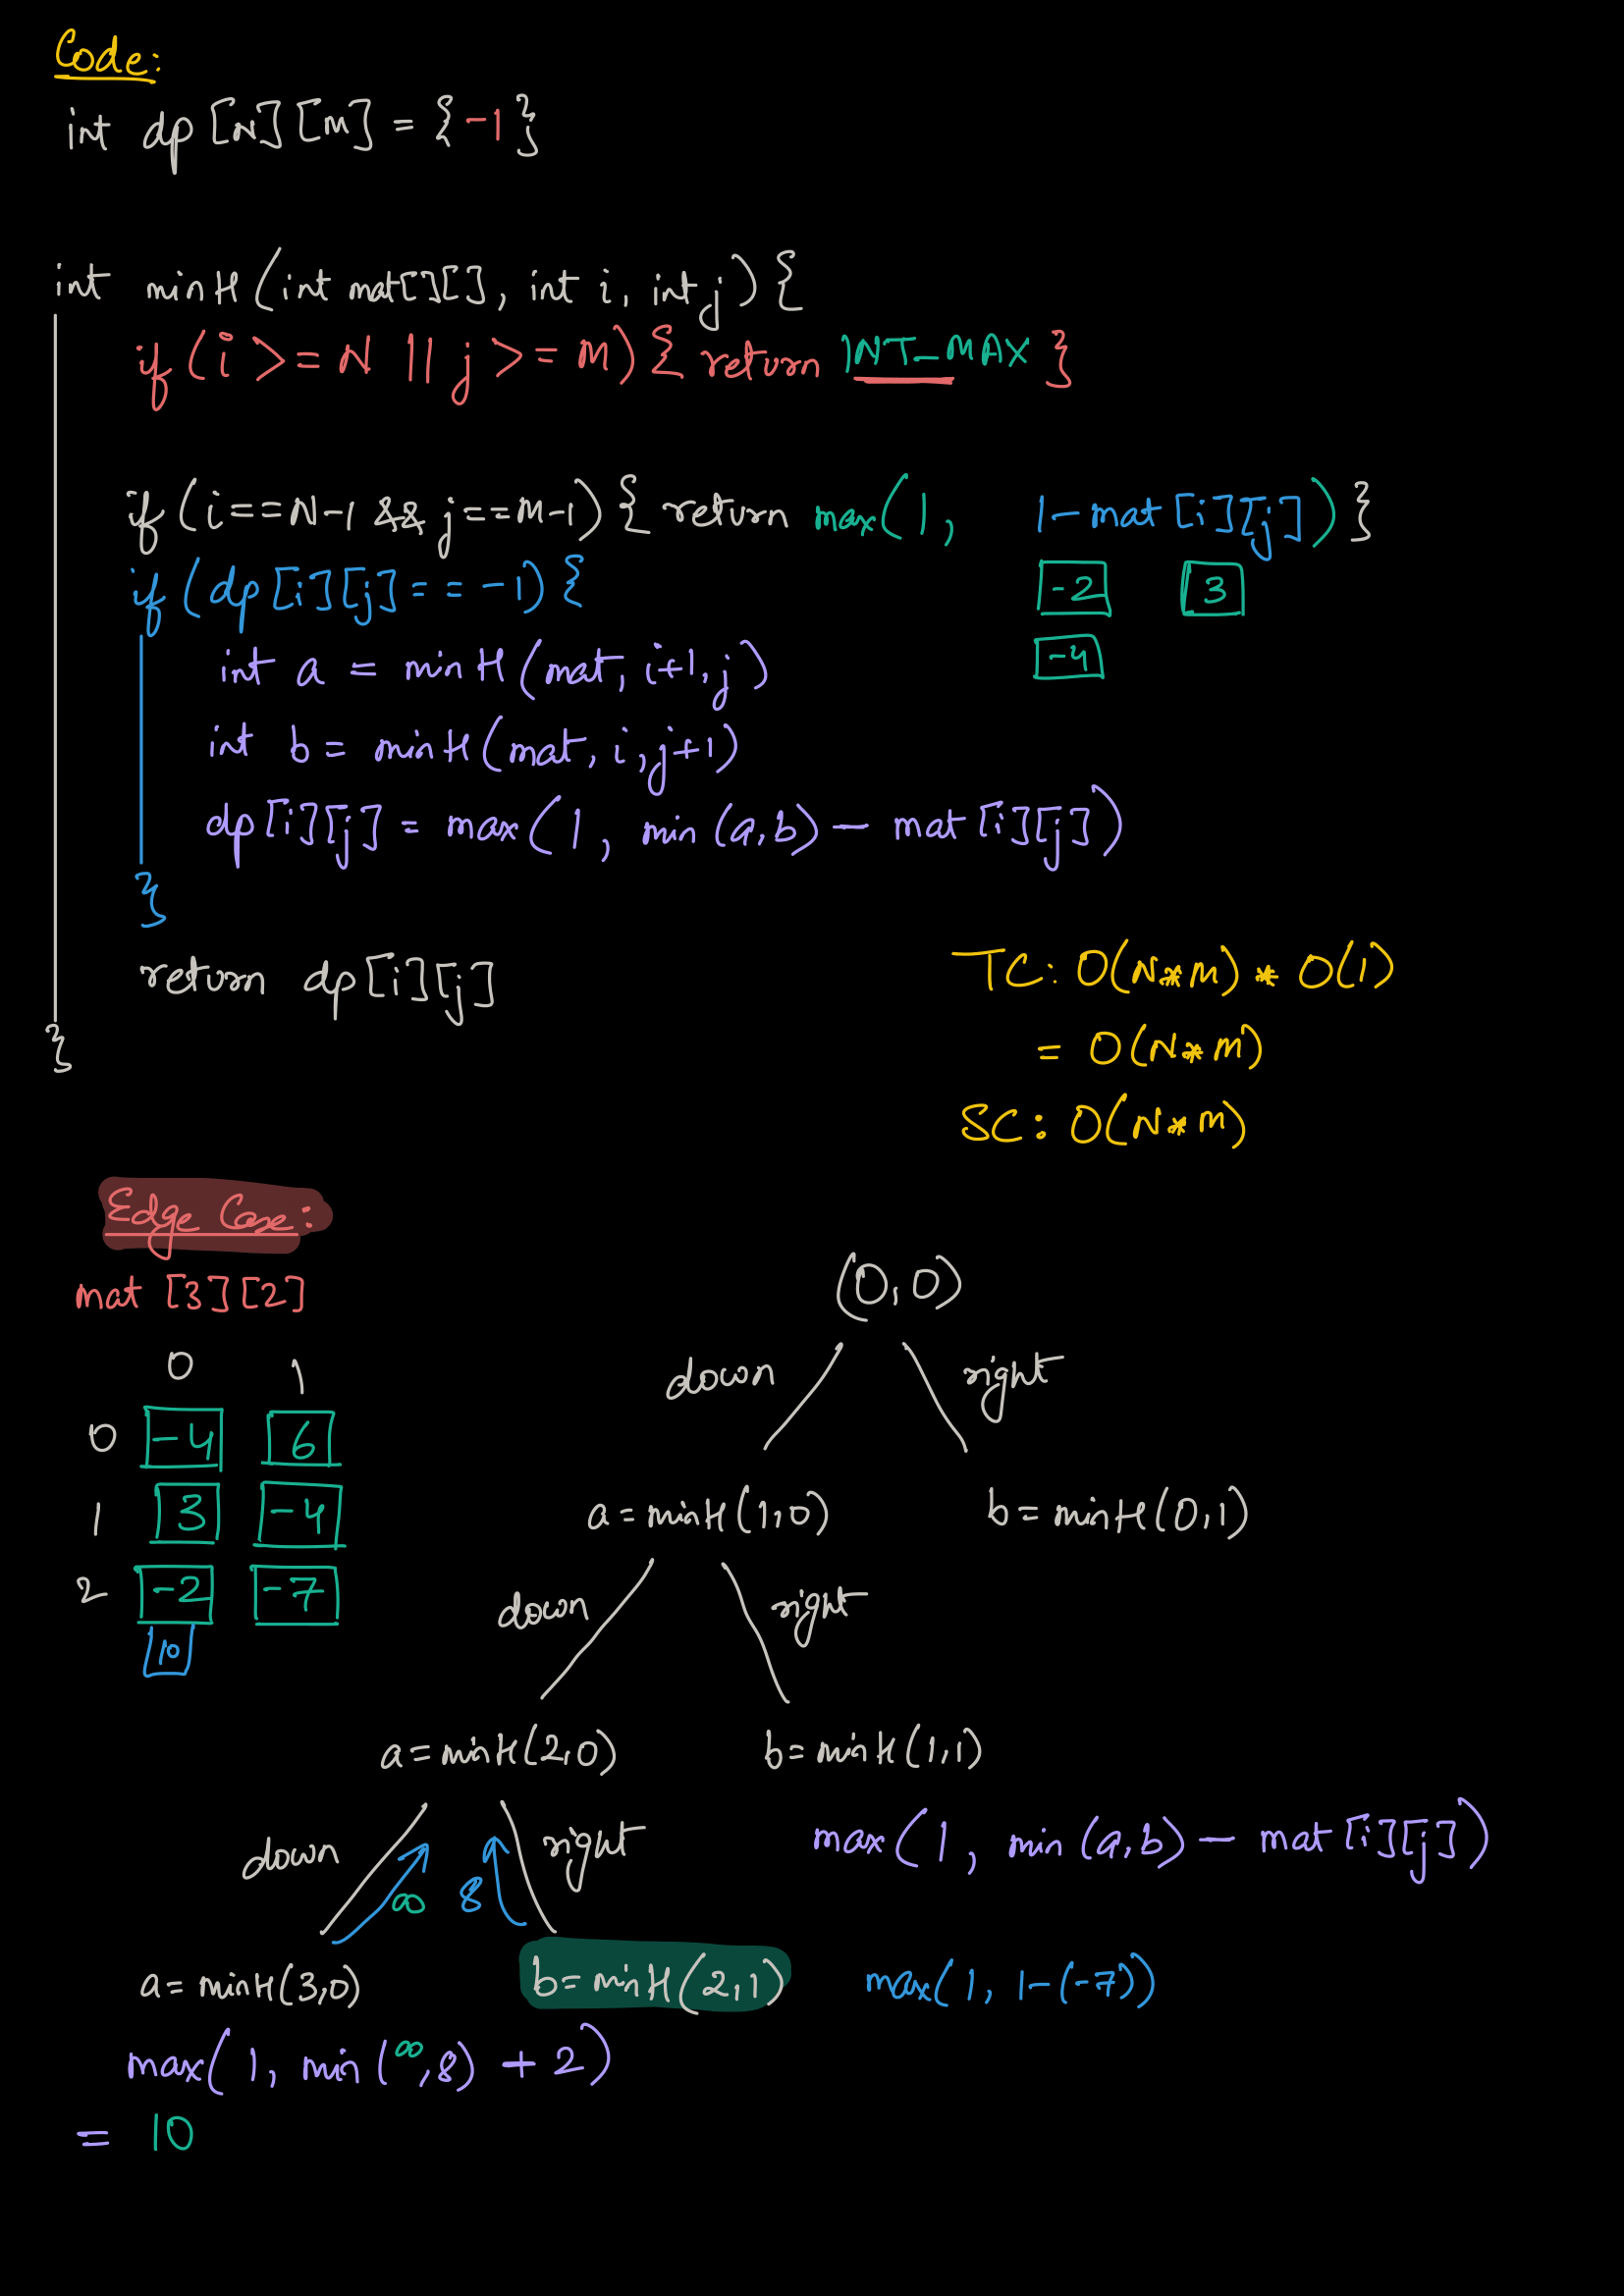 Code:
int dp[N][M] = {-1}
int minH(int mat[][], int i, int j){
if(i >= N || j >= M){ return INT_MAX }
if(i==N-1 && j==M-1){ return max(1, 1-mat[i][j])}
if(dp[i][j]== -1){
-2 3
int a = minH(mat, i+1, j)
-4
int b = minH(mat, i, j+1)
dp[i][j] = max(1, min(a,b) - mat[i][j])
}
return dp[i][j]
}
TC: O(N*M) * O(1)
= O(N*M)
SC: O(N*M)
Edge Case:
mat [3][2]
0 1
0 -4 6
1 3 -4
2 -2 -7
10
(0,0)
down right
a = minH(1,0) b = minH(0,1)
down right
a = minH(2,0) b = minH(1,1)
down ∞ 8 right
max(1, min(a,b) - mat[i][j])
a = minH(3,0) b = minH(2,1) max(1, 1-(-7))
max(1, min(∞,8) + 2)
= 10